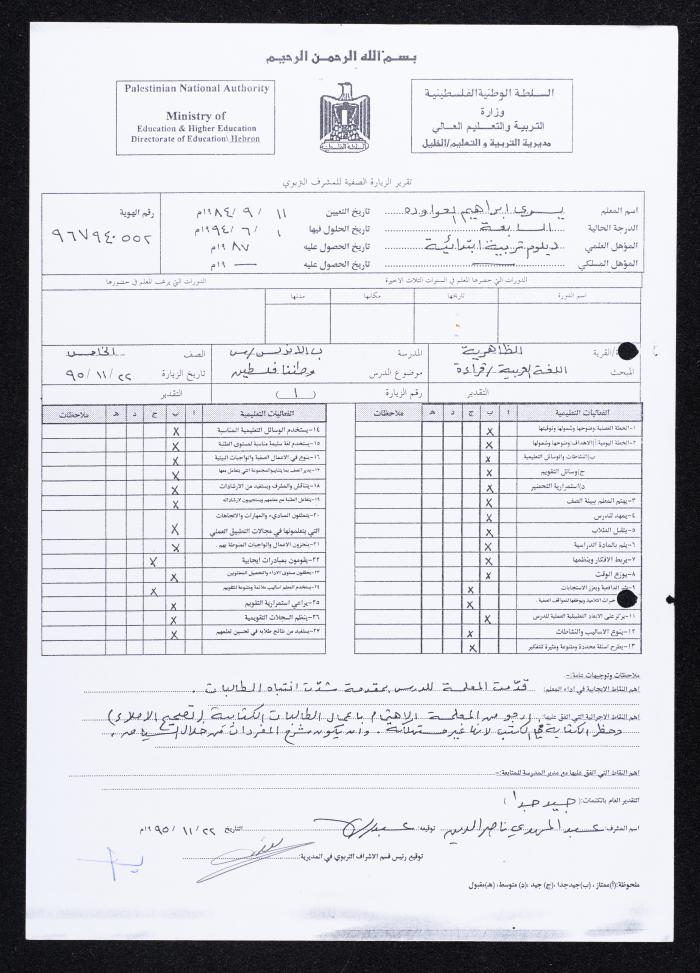 بسم الله الرحمن الرحيم
Palestinian National Authority
Ministry of
Education & Higher Education
Directorate of Education\ Hebron
السلطة الوطنية الفلسطينية
وزارة
التربية والتعليم العالي
مديرية التربية والتعليم/الخليل
السلطة الفلسطينية
تقرير الزيارة الصفية للمشرف التربوي
اسم المعلم يسرى ابراهيم العواوده تاريخ التعيين ١١ / ٩ / ١٩٨٤م
رقم الهوية
٩٦٧٩٤٠٥٥٢
الدرجة الحالية السابعة تاريخ الحلول فيها ١ / ٦ / ١٩٩٤م
المؤهل العلمي دبلوم تربية ابتدائية تاريخ الحصول عليه ١٩٨٧م
المؤهل المسلكي ــــ تاريخ الحصول عليه ــــ ١٩م
الدورات التي حضرها المعلم في السنوات الثلاث الاخيرة
الدورات التي يرغب المعلم في حضورها
اسم الدورة تاريخها مكانها مدتها
/القرية الظاهرية المدرسة بنات الاندلس/س الصف الخامس
المبحث اللغة العربية/قراءة موضوع الدرس وطننا فلسطين تاريخ الزيارة ٢٢ / ١١ / ٩٥
التقدير رقم الزيارة (١) التقدير
الفعاليات التعليمية أ ب ج د هـ ملاحظات
١-الخطة الفصلية:وضوحها وشمولها وتوقيتها X
٢-الخطة اليومية:أ)الاهداف:وضوحها وشمولها X
ب)النشاطات والوسائل التعليمية X
ج)وسائل التقويم X
د)استمرارية التحضير X
٣-يهتم المعلم ببيئة الصف X
٤-يمهد للدرس X
٥-يتقبل الطلاب X
٦-يلم بالمادة الدراسية X
٧-يربط الافكار وينظمها X
٨-يوزع الوقت X
٩-يثير الدافعية ويعزز الاستجابات X
خبرات التلاميذ ويوظفها للمواقف الصفية X
١١-يركز على الابعاد التطبيقية العملية للدرس X
١٢-ينوع الاساليب والنشاطات X
١٣-يطرح اسئلة محددة ومتنوعة ومثيرة للتفكير X
الفعاليات التعليمية أ ب ج د هـ ملاحظات
١٤-يستخدم الوسائل التعليمية المناسبة X
١٥-يستخدم لغة سليمة مناسبة لمستوى الطلبة X
١٦-ينوع في الاعمال الصفية والواجبات البيتية X
١٧-يدير الصف بما يتناسب والمجموعة التي يتعامل معها X
١٨-يتناقش والمشرف ويستفيد من الارشادات X
١٩-يتفاعل الطلبة مع معلمهم ويستجيبون لارشاداته X
٢٠-يتمثلون المبادىء والمهارات والاتجاهات
التي يتعلمونها في مجالات التطبيق العملي X
٢١-ينجزون الاعمال والواجبات المنوطة بهم X
٢٢-يقومون بمبادرات ايجابية X
٢٣-يحققون مستوى الاداء والتحصيل المطلوبين X
٢٤-يستخدم المعلم اساليب ملائمة ومتنوعة للتقويم X
٢٥-يراعي استمرارية التقويم X
٢٦-ينظم السجلات التقويمية X
٢٧-يستفيد من نتائج طلابه في تحسين تعلمهم X
ملاحظات وتوجيهات عامة:-
اهم النقاط الايجابية في اداء المعلم: قدّمت المعلمة للدرس بمقدمة شدّت انتباه الطالبات .
اهم النقاط الاجرائية التي اتفق عليها: ارجو من المعلمة الاهتمام باعمال الطالبات الكتابية (تصحيح الاملاء)
وحظر الكتابة في الكتب لانها غير مستهلكة . وان يكون شرح المفردات من خلال السياق .
اهم النقاط التي اتفق عليها مع مدير المدرسة للمتابعة:-
التقدير العام بالكلمات:( جيد جدا )
اسم المشرف: عبد المهدي ناصر الدين توقيعه: التاريخ ٢٢ / ١١ / ١٩٩٥م
توقيع رئيس قسم الاشراف التربوي في المديرية:
ملحوظة:(أ)ممتاز ، (ب)جيدجدا، (ج) جيد، (د) متوسط، (هـ)مقبول